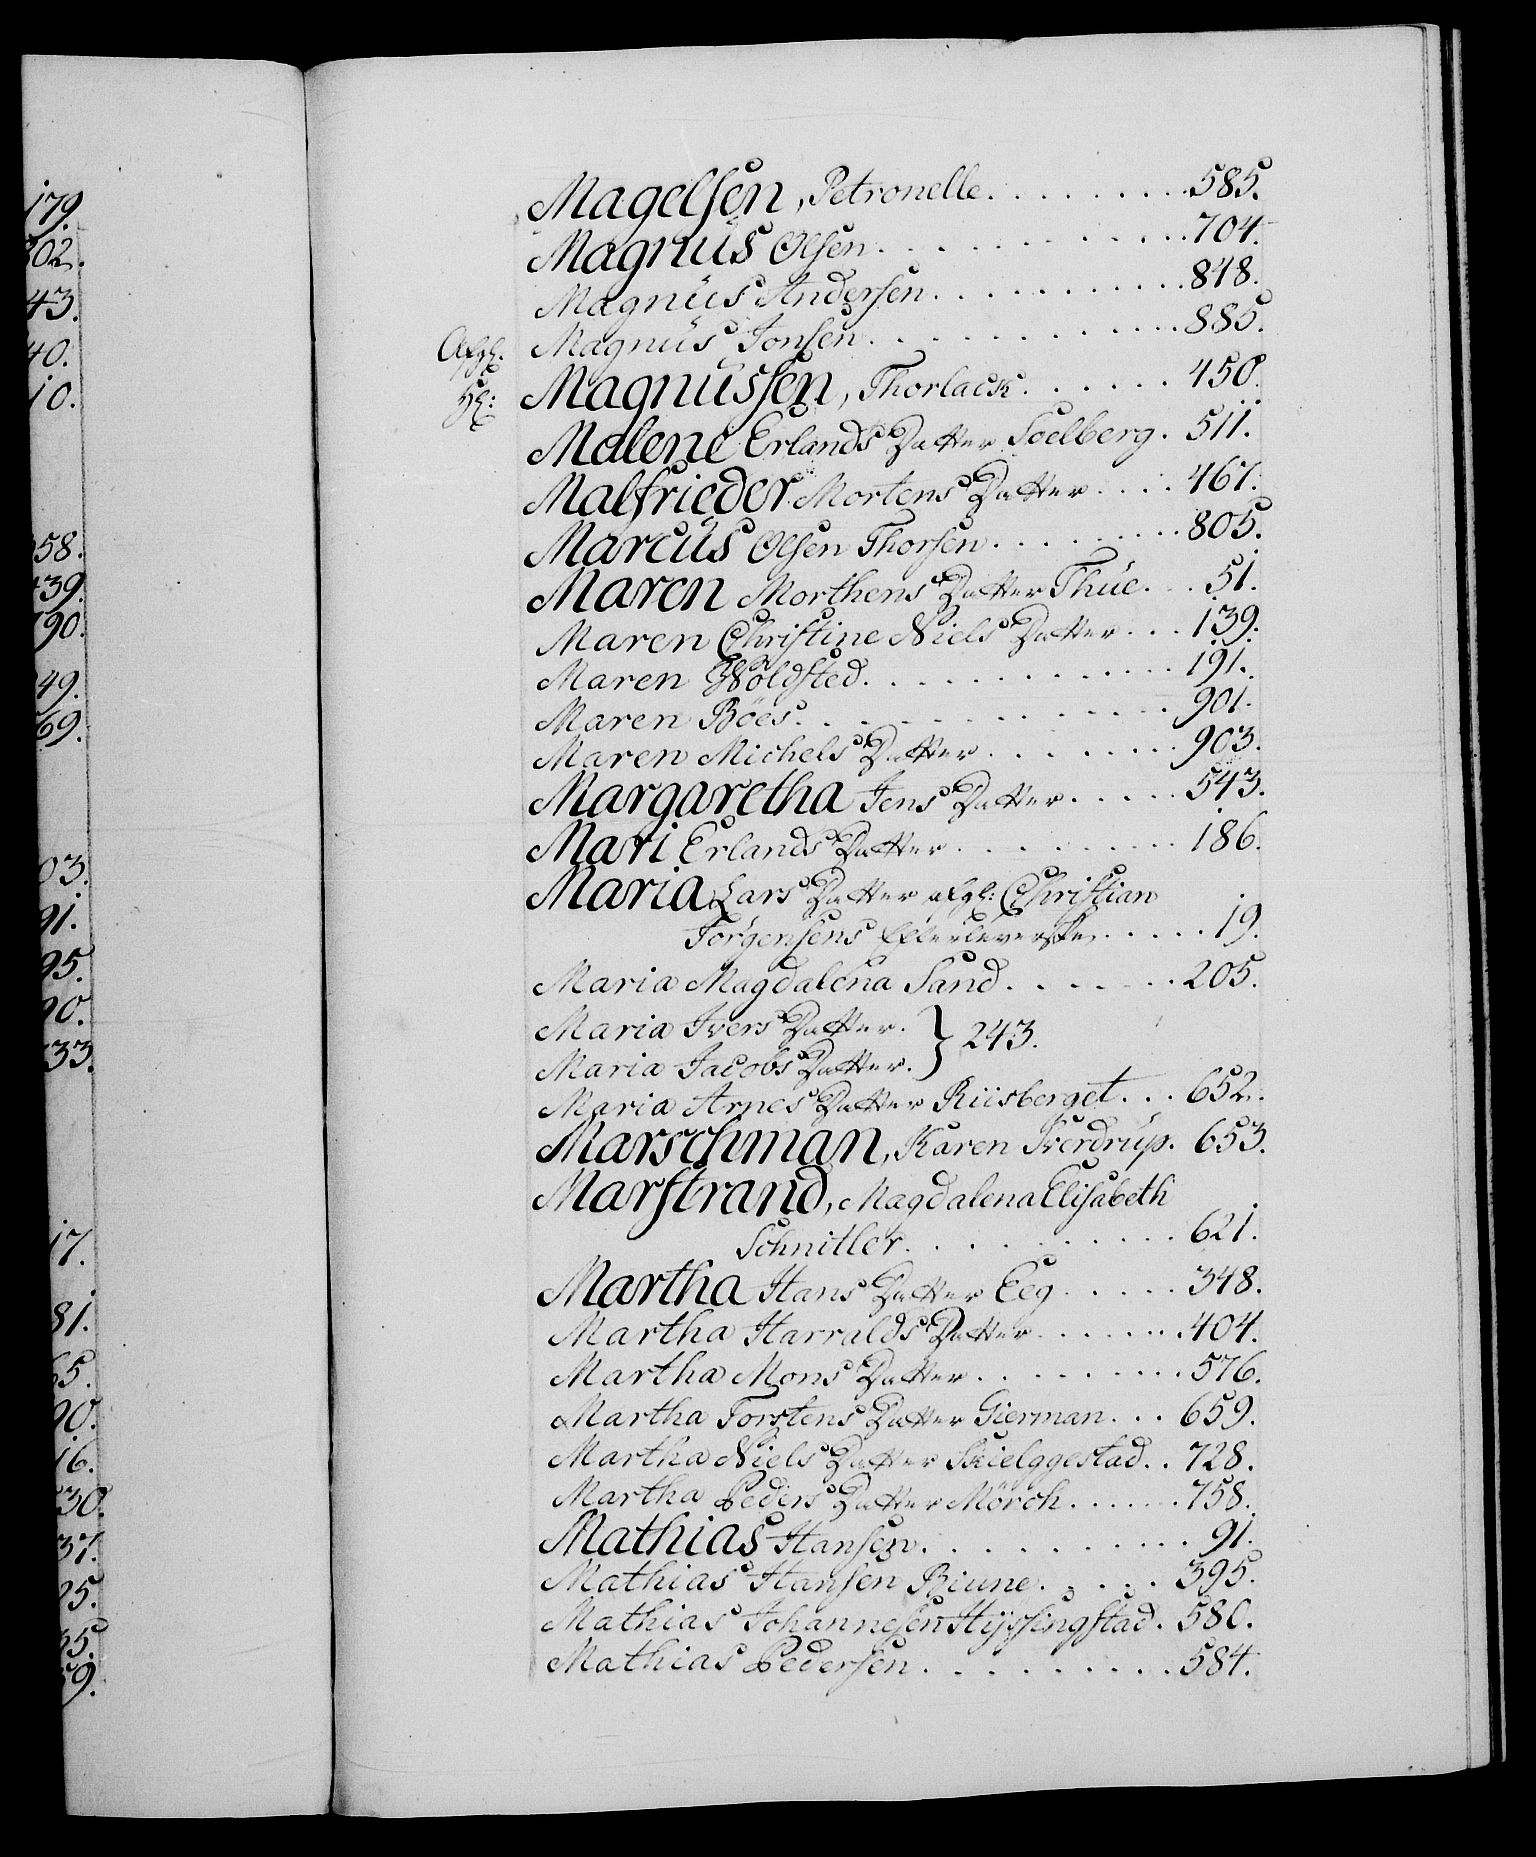 179.
302.
43.
40.
10.
58.
439.
790.
49.
69.
03.
91.
95.
90.
33.
17.
81.
65.
90.
16.
30.
37.
25.
35.
59.
Magelsen, Petronelle. . . . . . . . . 585.
Magnüs Olsen. . . . . . . . . . . . 704.
Magnüs Andersen. . . . . . . . . . 848.
Afgl. Magnüs Jonsen. . . . . . . . . . . 885.
Hl: Magnüssen, Thorlack. . . . . . 450.
Malene Erlands Datter Soelberg. 511.
Malfrieder Mortens Datter. . . . 467.
Marcüs Olsen Thorsen. . . . . . . . 805.
Maren Morthens Datter Thüe. . . 51.
Maren Christine Niels Datter. . . 139.
Maren Woldsted. . . . . . . . . . . 191.
Maren Böes. . . . . . . . . . . . . 901.
Maren Michels Datter. . . . . . . 903.
Margaretha Jens Datter. . . . . 543.
Mari Erlands Datter. . . . . . . . 186.
Maria Lars Datter afgl: Christian
Jörgensens Efterleverske. . . . . 19.
Maria Magdalena Sand. . . . . . . 205.
Maria Ivers Datter. } 243.
Maria Jacobs Datter.
Maria Arnes Datter Riisberget. . . 652.
Marschman, Karen Sverdrüp. 653.
Marstrand, Magdalena Elisabeth
Schnitler. . . . . . . . . . . 621.
Martha Hans Datter Eeg. . . . . 348.
Martha Harralds Datter. . . . . . . 404.
Martha Mons Datter. . . . . . . . . 576.
Martha Torstens Datter Gierman. . . 659.
Martha Niels Datter Skielggestad. . 728.
Martha Peders Datter Mörch. . . . . . 758.
Mathias Hansen. . . . . . . . . . . 91.
Mathias Hansen Biune. . . . . 395.
Mathias Johannesen Hyssingstad. 580.
Mathias Pedersen. . . . . . . . . . 584.